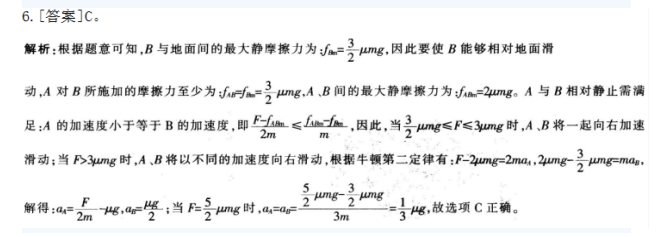 6.[答案]C。
解析:根据题意可知,B 与地面间的最大静摩擦力为:fBm=3/2 μmg,因此要使 B 能够相对地面滑
动,A 对 B 所施加的摩擦力至少为:fAB=fBm=3/2 μmg,A、B 间的最大静摩擦力为:fABm=2μmg。A 与 B 相对静止需满
足:A 的加速度小于等于 B 的加速度,即 (F-fABm)/2m ≤ (fABm-fBm)/m,因此,当 3/2 μmg≤F≤3μmg 时,A、B 将一起向右加速
滑动;当 F>3μmg 时,A、B 将以不同的加速度向右滑动,根据牛顿第二定律有:F-2μmg=2maA,2μmg-3/2 μmg=maB,
解得:aA=F/2m-μg,aB=μg/2;当 F=5/2 μmg 时,aA=aB=(5/2 μmg-3/2 μmg)/3m=1/3 μg,故选项 C 正确。